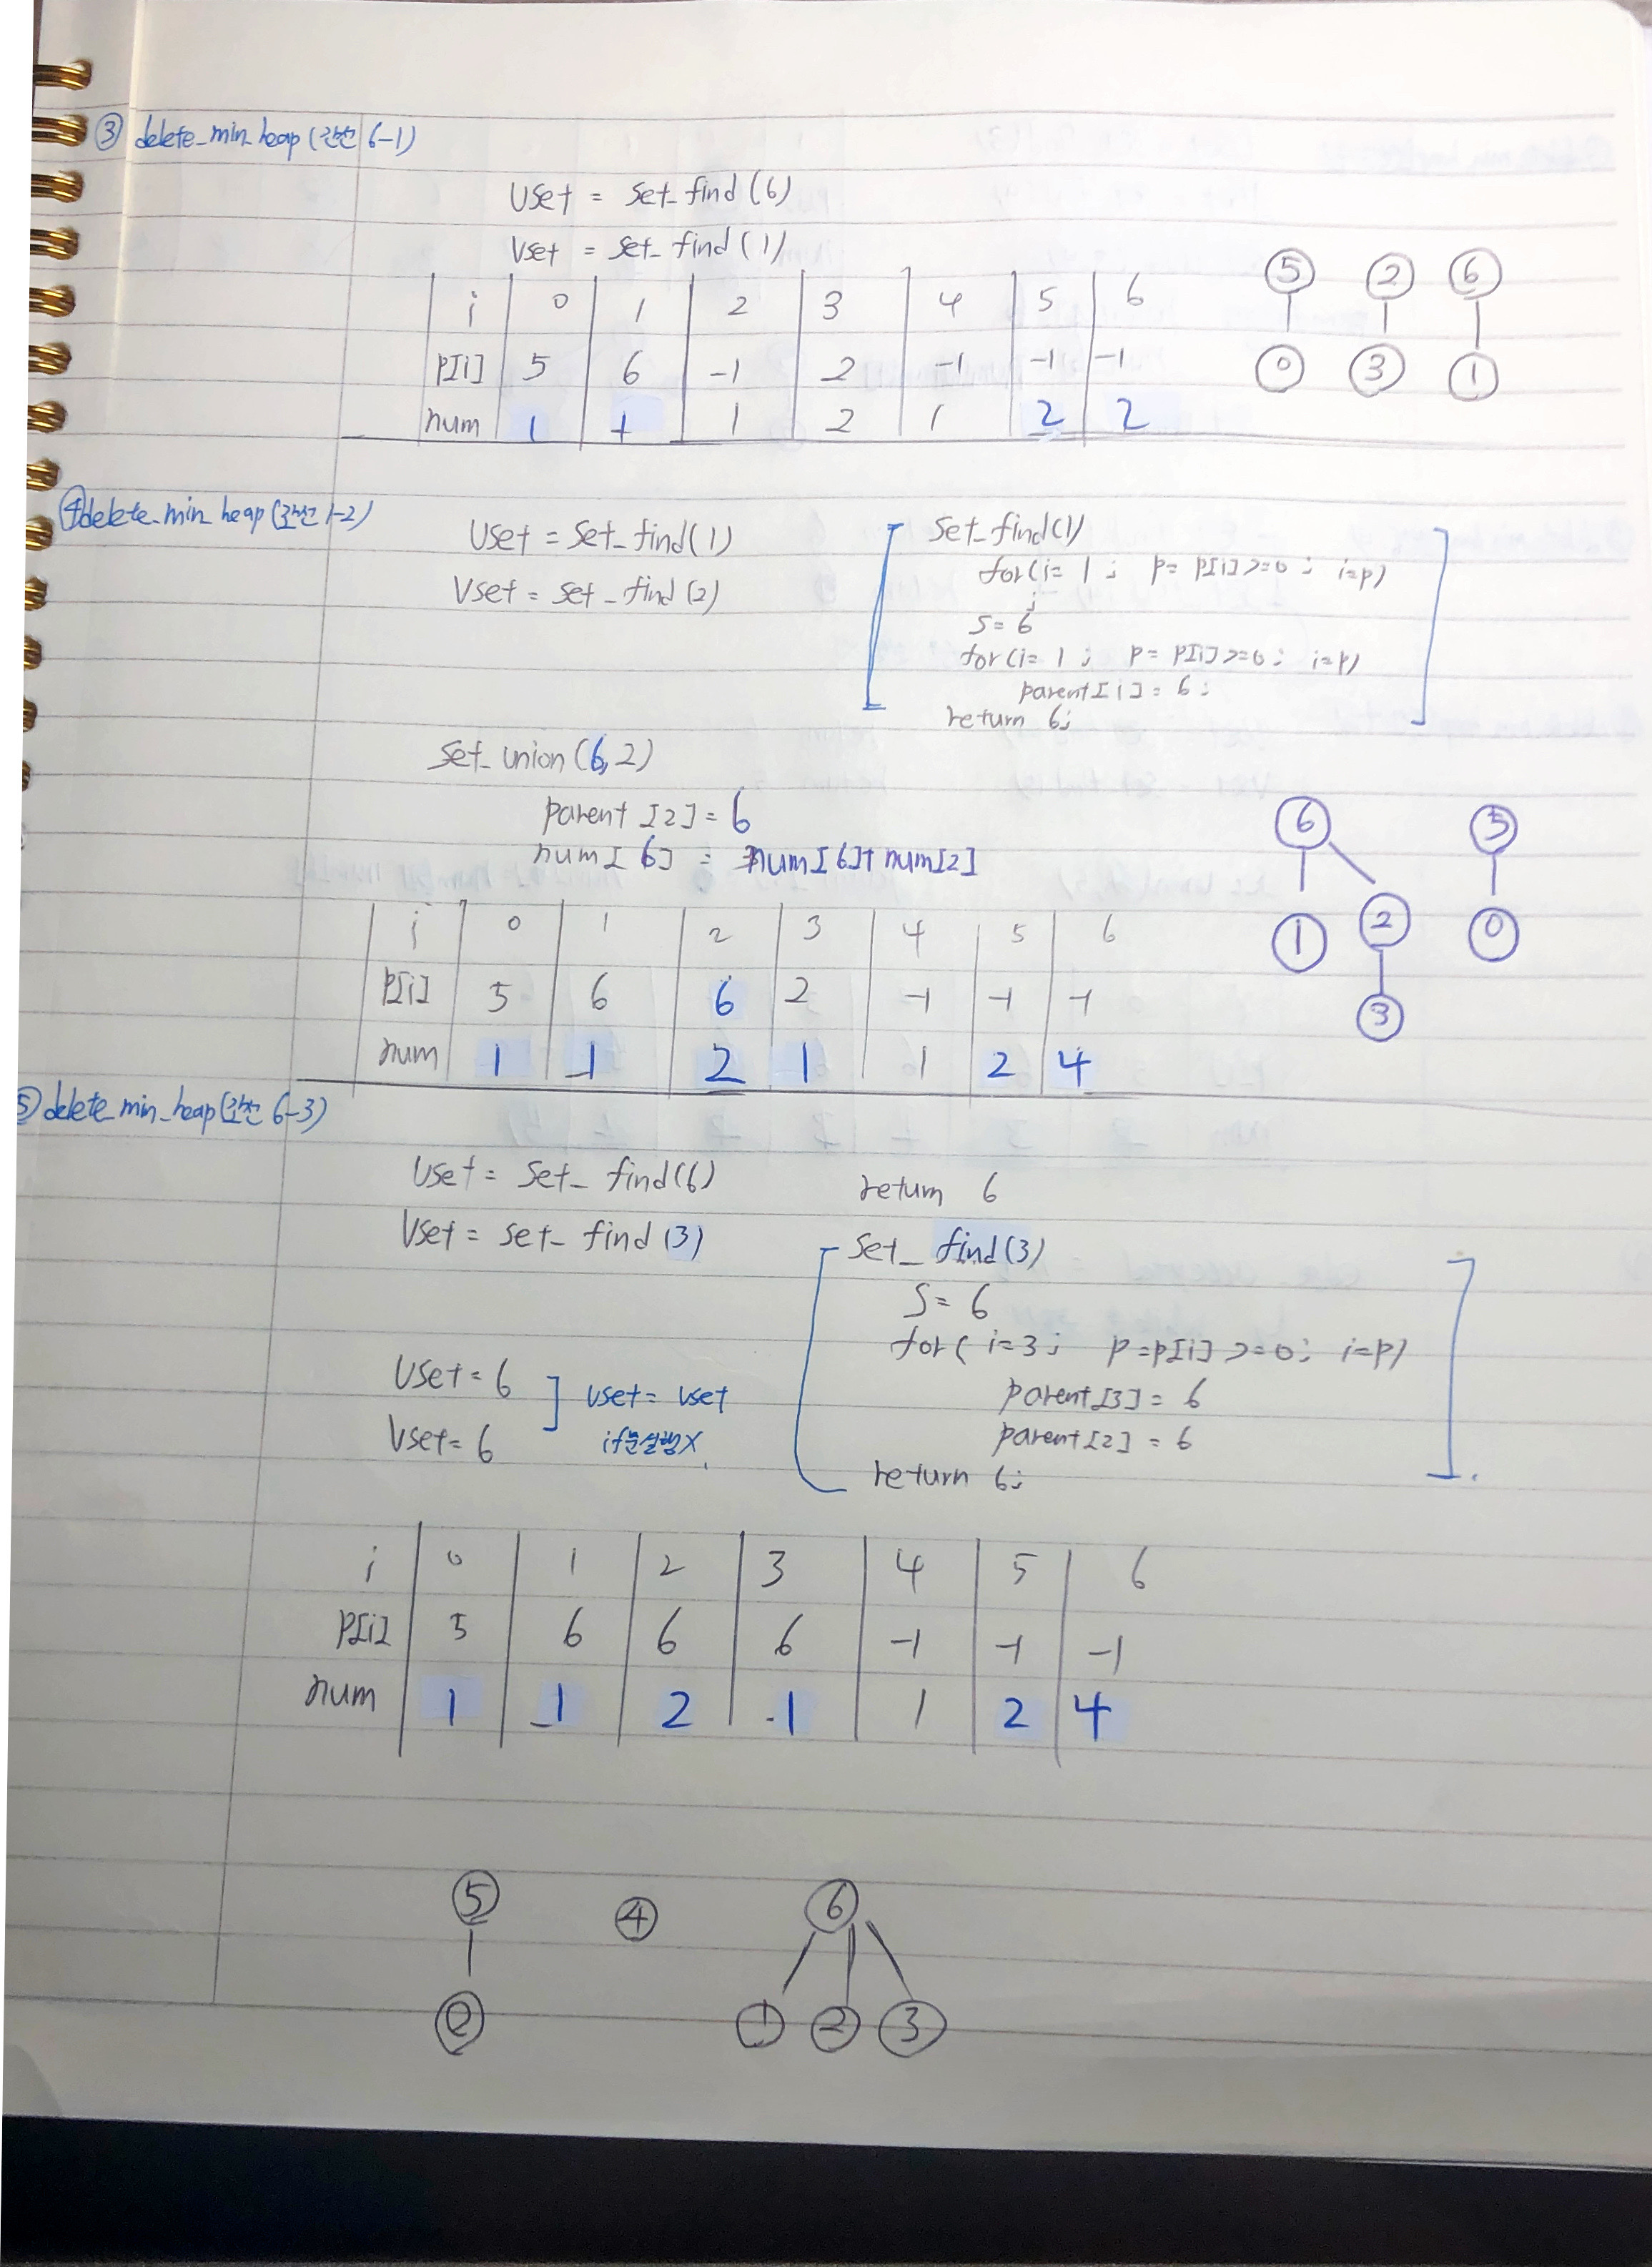 ③ delete_min_heap (간선 6-1)
Uset = set_find(6)
Vset = set_find(1)
i 0 1 2 3 4 5 6
P[i] 5 6 -1 2 -1 -1 -1
num 1 1 1 2 1 2 2
5 2 6
0 3 1
④ delete_min_heap (간선 1-2)
Uset = set_find(1)
Vset = set_find(2)
set_find(1)
for(i= 1 ; p= p[i] >=0 ; i=p)
;
s= 6
for(i= 1 ; p= p[i] >=0 ; i=p)
parent[i] = 6;
return 6;
set_union(6,2)
parent[2] = 6
num[6] = num[6]+ num[2]
6 5
1 2 0
3
i 0 1 2 3 4 5 6
P[i] 5 6 6 2 -1 -1 -1
num 1 1 2 1 1 2 4
⑤ delete_min_heap (간선 6-3)
Uset = set_find(6) return 6
Vset = set_find(3)
set_find(3)
S= 6
for( i=3; p=p[i] >=0; i=p)
parent[3] = 6
parent[2] = 6
return 6;
Uset= 6
Vset= 6
uset= vset
if문실행X
i 0 1 2 3 4 5 6
P[i] 5 6 6 6 -1 -1 -1
num 1 1 2 1 1 2 4
5 4 6
0 1 2 3